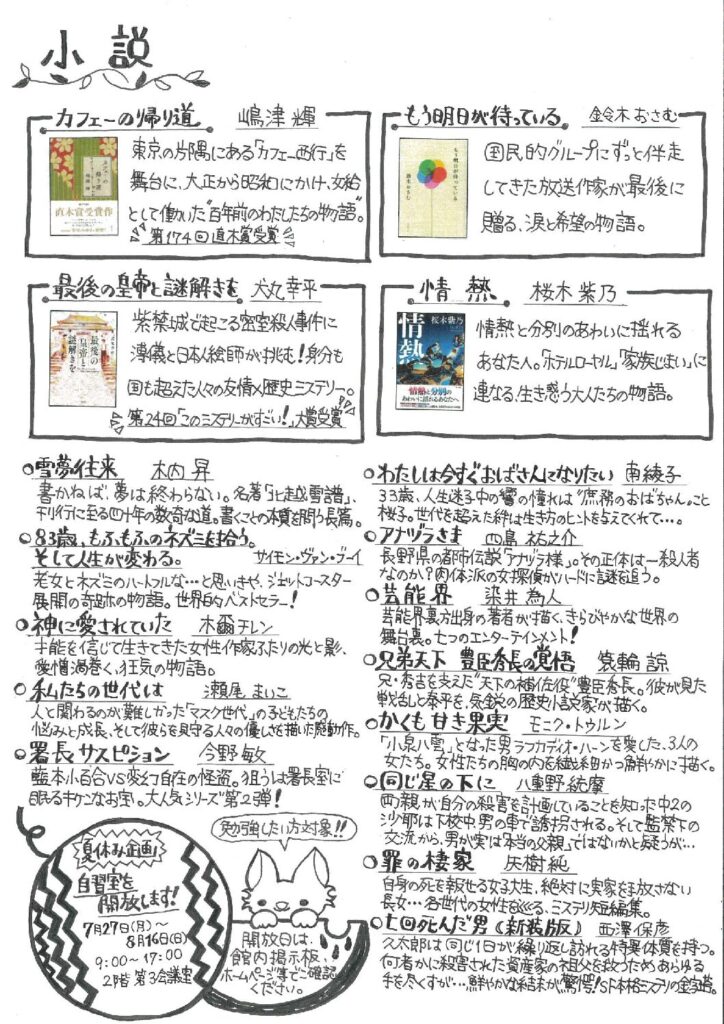 小説
カフェーの帰り道 嶋津輝
東京の片隅にある「カフェー西行」を
舞台に、大正から昭和にかけ、女給
として働いた"百年前のわたしたちの物語"。
第174回直木賞受賞
直木賞受賞作
もう明日が待っている 鈴木おさむ
国民的グループにずっと伴走
してきた放送作家が最後に
贈る、涙と希望の物語。
最後の皇帝と謎解きを 犬丸幸平
紫禁城で起こる密室殺人事件に
溥儀と日本人絵師が挑む!身分も
国も超えた人々の友情×歴史ミステリー。
第24回「このミステリーがすごい!」大賞受賞
最後の
皇帝と
謎解きを
情熱 桜木紫乃
情熱と分別のあわいに揺れる
あなた人。「ホテルローヤル」「家族じまい」に
連なる、生き惑う大人たちの物語。
桜木紫乃
情熱
情熱と分別の
あわいに揺れるあなたへ
雪夢往来 木内昇
書かねば、夢は終わらない。名著「北越雪譜」、
刊行に至る四十年の数奇な道。書くことの本質を問う長篇。
83歳、もふもふのネズミを拾う。
そして人生が変わる。 サイモン・ヴァン・ブーイ
老女とネズミのハートフルな…と思いきや、ジェットコースター
展開の奇跡の物語。世界的ベストセラー!
神に愛されていた 木爾チレン
才能を信じて生きてきた女性作家ふたりの光と影、
愛憎渦巻く、狂気の物語。
私たちの世代は 瀬尾まいこ
人と関わるのが難しかった「マスク世代」の子どもたちの
悩みと成長、そして彼らを見守る人々の優しさを描いた感動作。
署長サスピション 今野敏
藍本小百合VS変幻自在の怪盗。狙うは署長室に
眠るキケンなお宝。大人気シリーズ第2弾!
わたしは今すぐおばさんになりたい 南綾子
33歳、人生迷子中の響の憧れは"庶務のおばちゃん"こと
桜子。世代を超えた絆は生き方のヒントを与えてくれて…。
アナヅラさま 四島祐之介
長野県の都市伝説「アナヅラ様」。その正体は一殺人者
なのか?肉体派の女探偵がハードに謎を追う。
芸能界 染井為人
芸能界裏方出身の著者が描く、きらびやかな世界の
舞台裏。七つのエンターテインメント!
兄弟天下 豊臣秀長の覚悟 箕輪諒
兄・秀吉を支えた"天下の補佐役"豊臣秀長。彼が見た
戦乱と泰平を、気鋭の歴史小説家が描く。
かくも甘き果実 モニク・トゥルン
「小泉八雲」となった男ラフカディオ・ハーンを愛した、3人の
女たち。女性たちの胸の内を繊細かつ鮮やかに描く。
同じ星の下に 八重野統摩
両親が自分の殺害を計画していることを知った中2の
沙耶は下校中、男の車で誘拐される。そして監禁下の
交流から、男が実は「本当の父親」ではないかと疑うが…
罪の棲家 矢樹純
自身の死を報せる女子大生、絶対に実家を手放さない
長女…各世代の女性を巡る、ミステリ短編集。
七回死んだ男(新装版) 西澤保彦
久太郎は同じ1日が繰り返し訪れる特異体質を持つ。
何者かに殺害された資産家の祖父を救うためあらゆる
手を尽くすが…鮮やかな結末が驚愕!SF本格ミステリの金字塔。
夏休み企画!
自習室を
開放します!
7月27日(月)～
8月16日(日)
9:00～17:00
2階 第3会議室
勉強したい方対象!!
開放日は、
館内掲示板、
ホームページ等でご確認
ください。